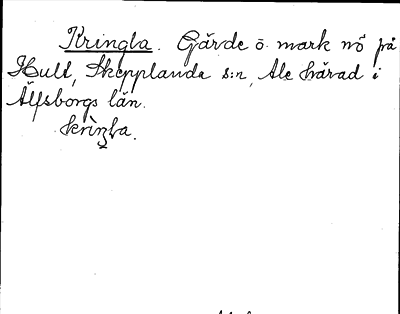 Kringla. Gärde o. mark nö på
Hult, Skepplanda s:n, Ale härad i
Älfsborgs län.
krìŋla.